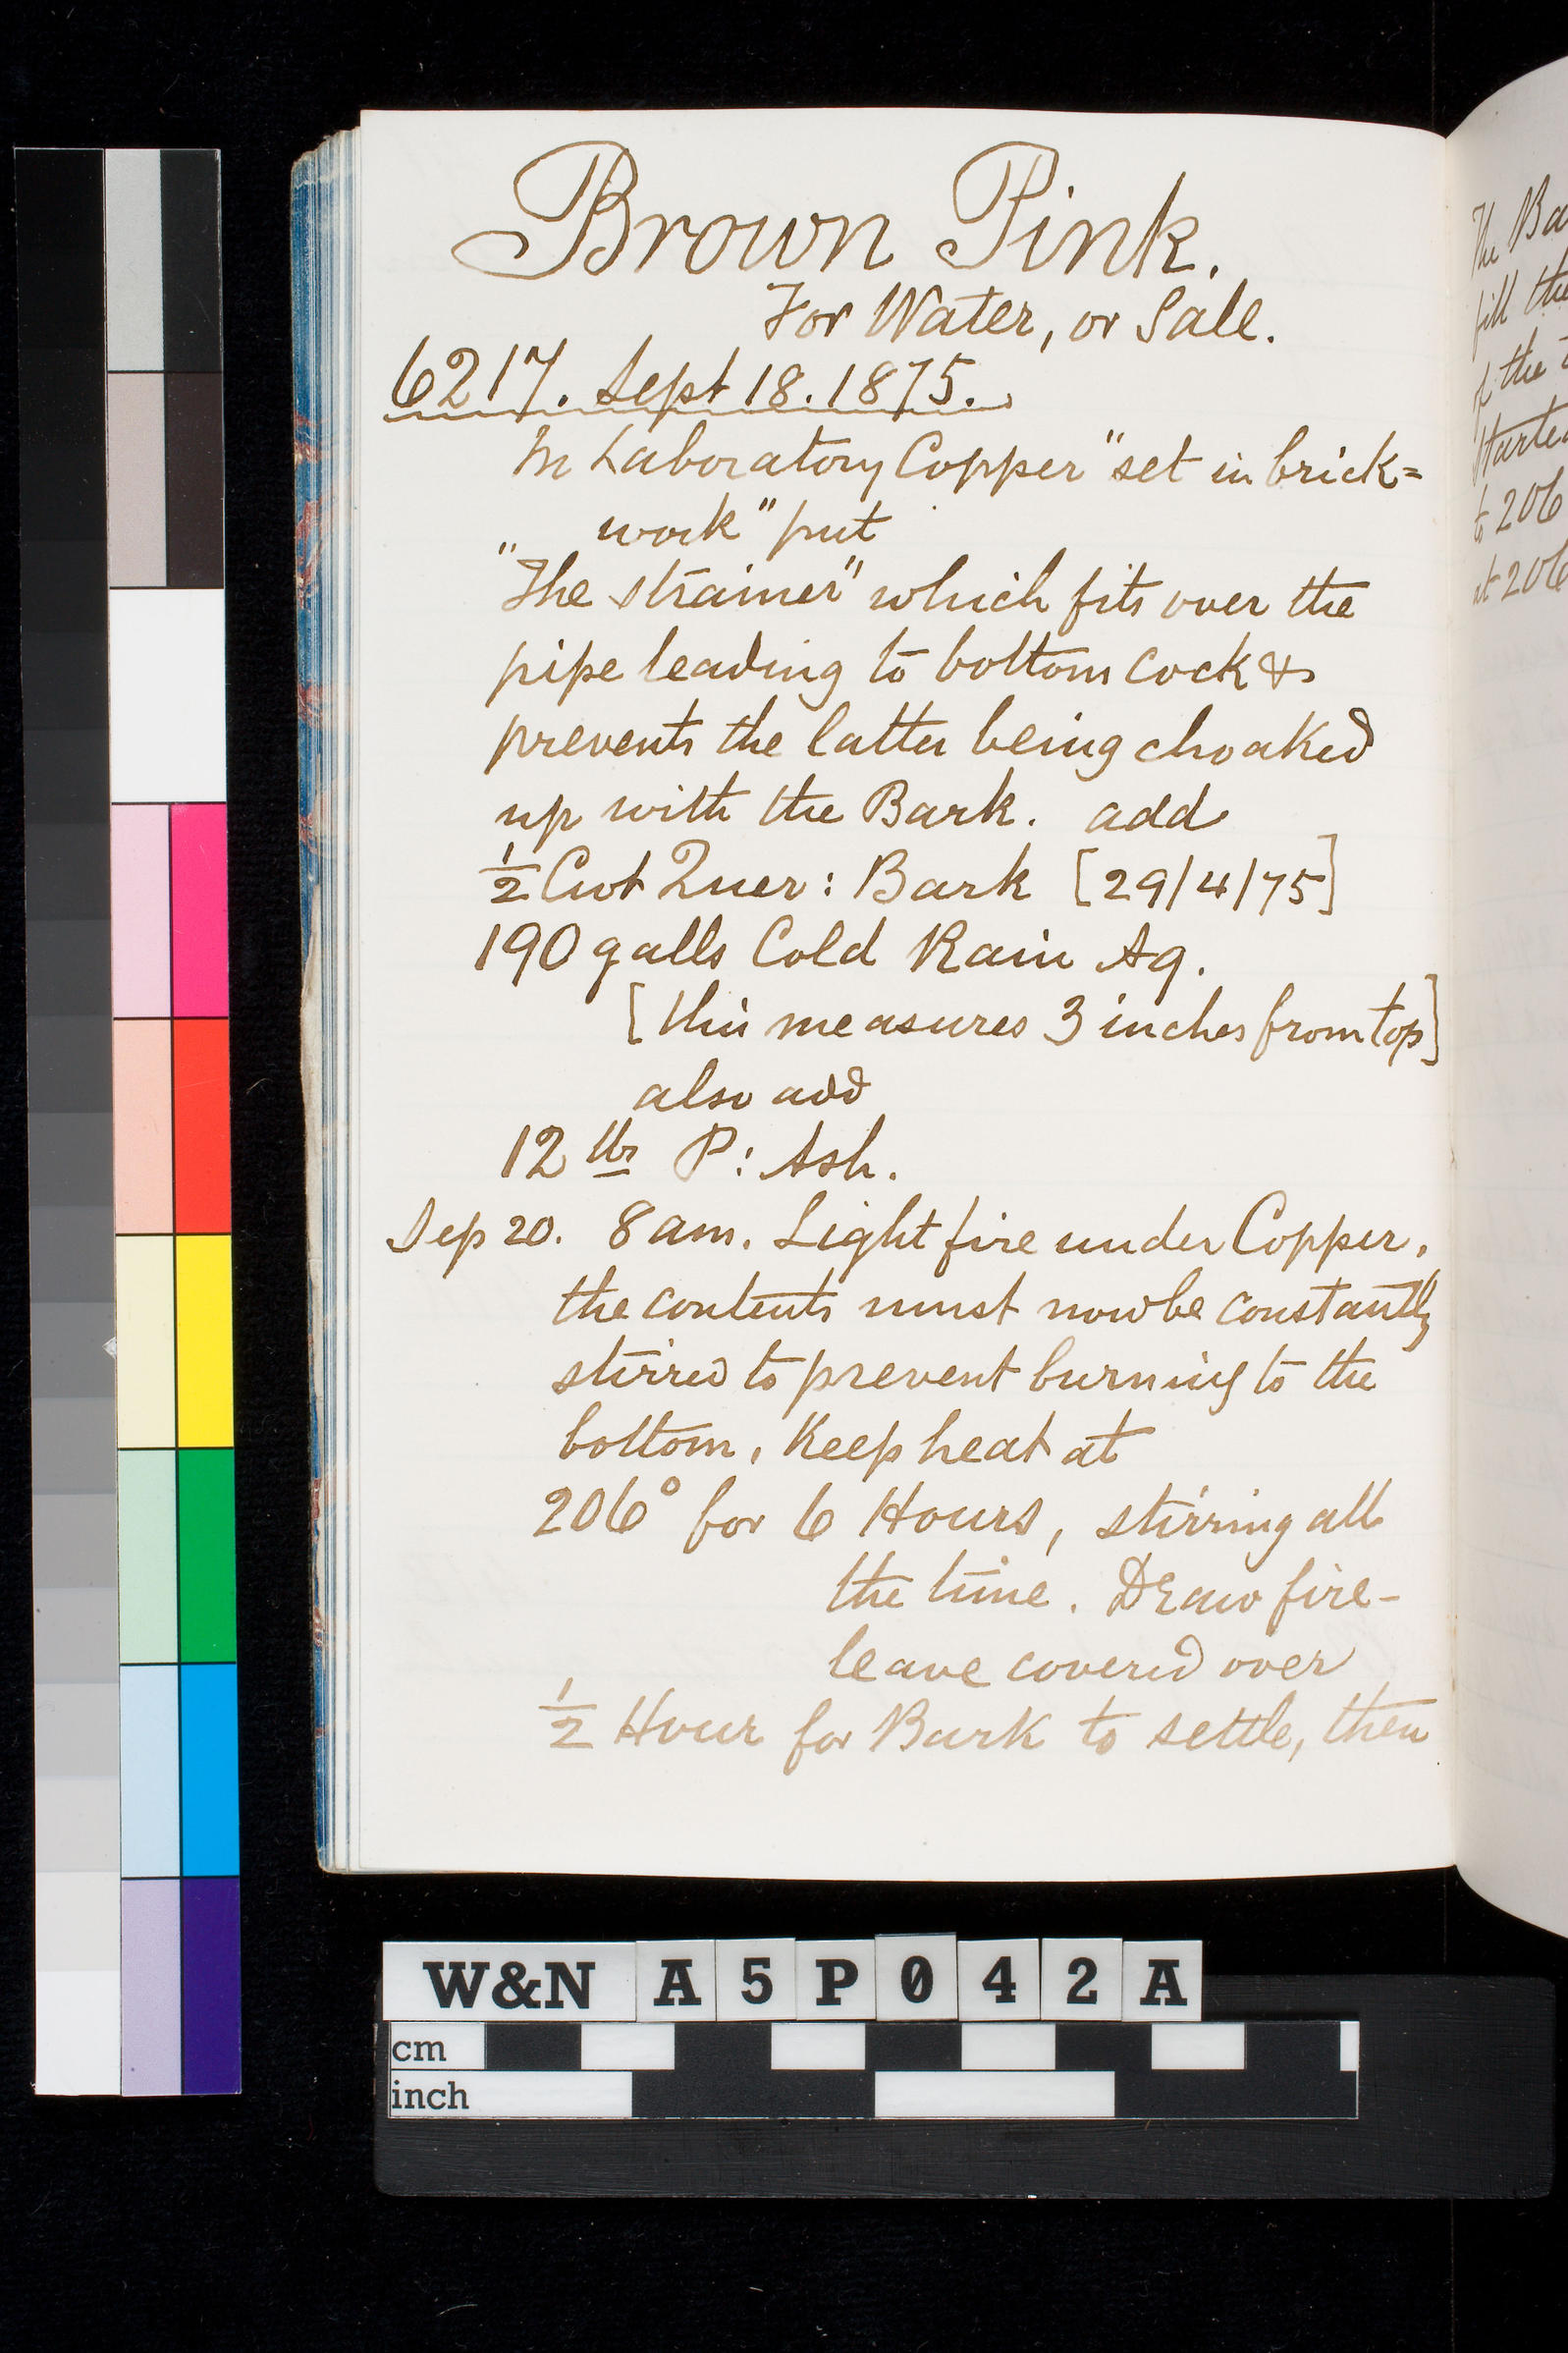 Brown Pink.
For Water, or Sale.
6217. Sept 18. 1875.
In Laboratory Copper "set in brick=
work" put
"The strainer" which fits over the
pipe leading to bottom cock &
prevents the latter being choaked
up with the Bark. add
½ Cwt Quer: Bark [29/4/75]
190 galls Cold Rain Aq.
[this measures 3 inches from top]
also add
12 lbs P: Ash.
Sep 20. 8 am. Light fire under Copper,
the contents must now be constantly
stirred to prevent burning to the
bottom, Keep heat at
206° for 6 Hours, stirring all
the time. Draw fire-
leave covered over
½ Hour for Bark to settle, then
The Ba
fill the
of the
Starte
to 206
at 206
W&N A5P042A
cm
inch